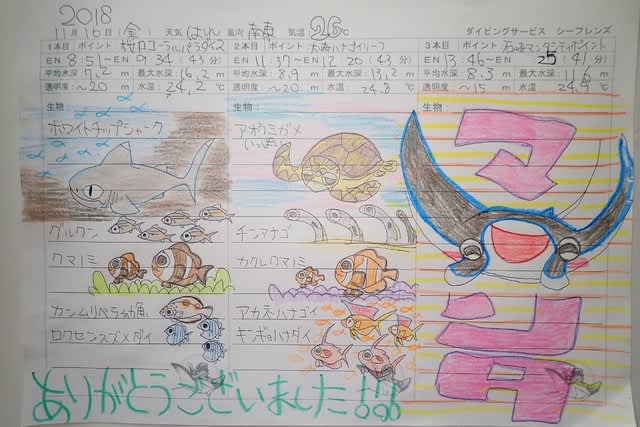 2018
11月16日(金) 天気 はれ 風向 南東 気温 26℃ ダイビングサービス シーフレンズ
1本目 ポイント 桜口コーラルパラダイス
EN 8:51〜EN 9:34 (43分)
平均水深:7.2m 最大水深:16.2m
透明度:〜20m 水温:24.2℃
生物:
ホワイトチップシャーク
グルクン
クマノミ
カンムリベラ幼魚
ロクセンスズメダイ
2本目 ポイント 大崎ハナゴイリーフ
EN 11:37〜EN 12:20 (43分)
平均水深:8.9m 最大水深:13.2m
透明度:〜20m 水温:24.8℃
生物:
アオウミガメ
いっぱい
チンアナゴ
カクレクマノミ
アカネハナゴイ
キンギョハナダイ
3本目 ポイント 石崎マンタシティポイント
EN 13:46〜EN 25 (41分)
平均水深:8.3m 最大水深:11.6m
透明度:〜15m 水温:24.9℃
マンタ
ありがとうございました!!!